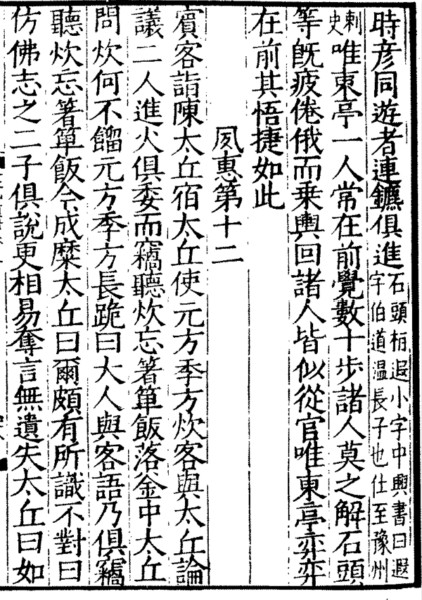 時彥同遊者連鑣俱進石頭桓遐小字中興書曰遐
字伯道温長子也仕至豫州
刺史唯東亭一人常在前覺數十步諸人莫之解石頭
等旣疲倦俄而乗輿回諸人皆似從官唯東亭弈弈
在前其悟捷如此
夙惠第十二
賔客詣陳太丘宿太丘使元方季方炊客與太丘論
議二人進火俱委而竊聽炊忘著箄飯落釜中太丘
問炊何不餾元方季方長跪曰大人與客語乃俱竊
聽炊忘著箄飯今成糜太丘曰爾頗有所識不對曰
仿佛志之二子俱說更相易奪言無遺失太丘曰如